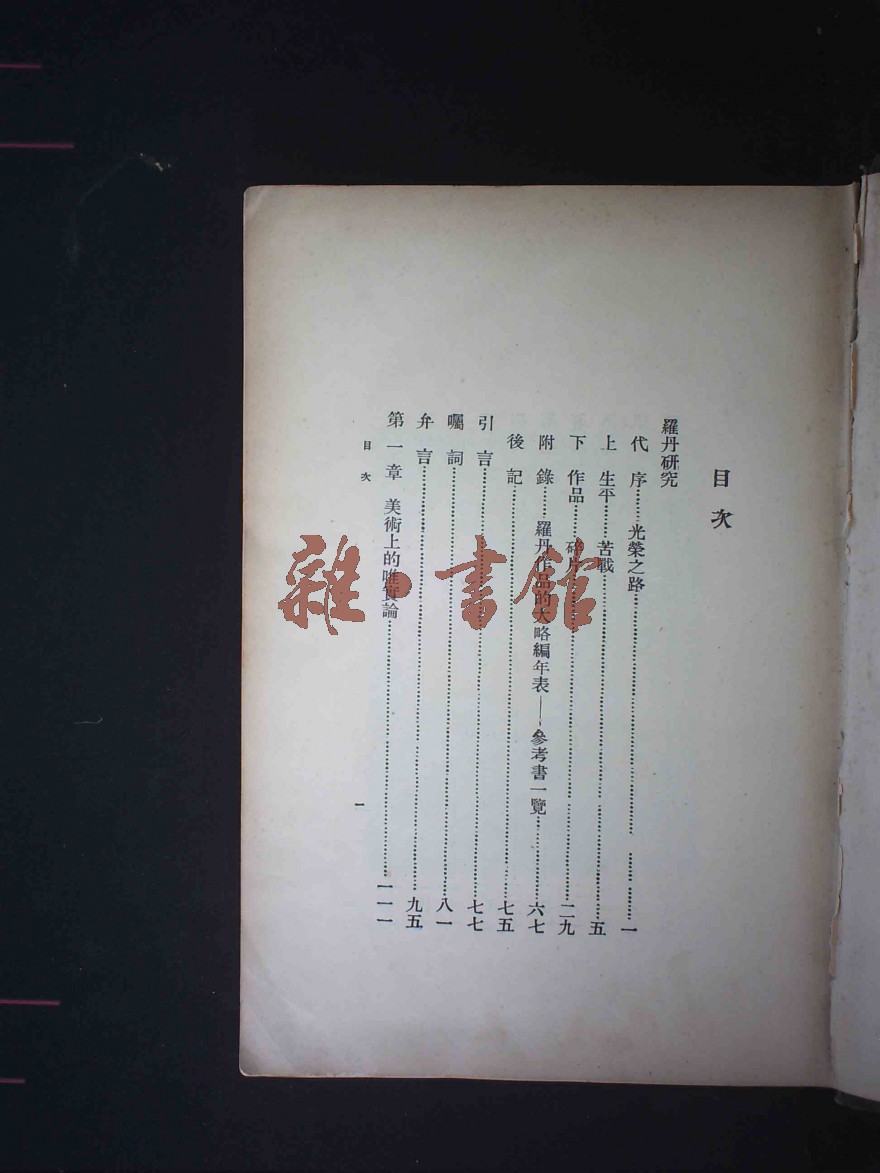 目次
羅丹研究
代序……光榮之路……一
上 生平……苦戰……五
下 作品……碎片……二九
附錄……羅丹作品的大略編年表——參考書一覽……六七
後記……七五
引言……七七
囑詞……八一
弁言……九五
第一章 美術上的唯實論……一一一
目次
一
雜·書館